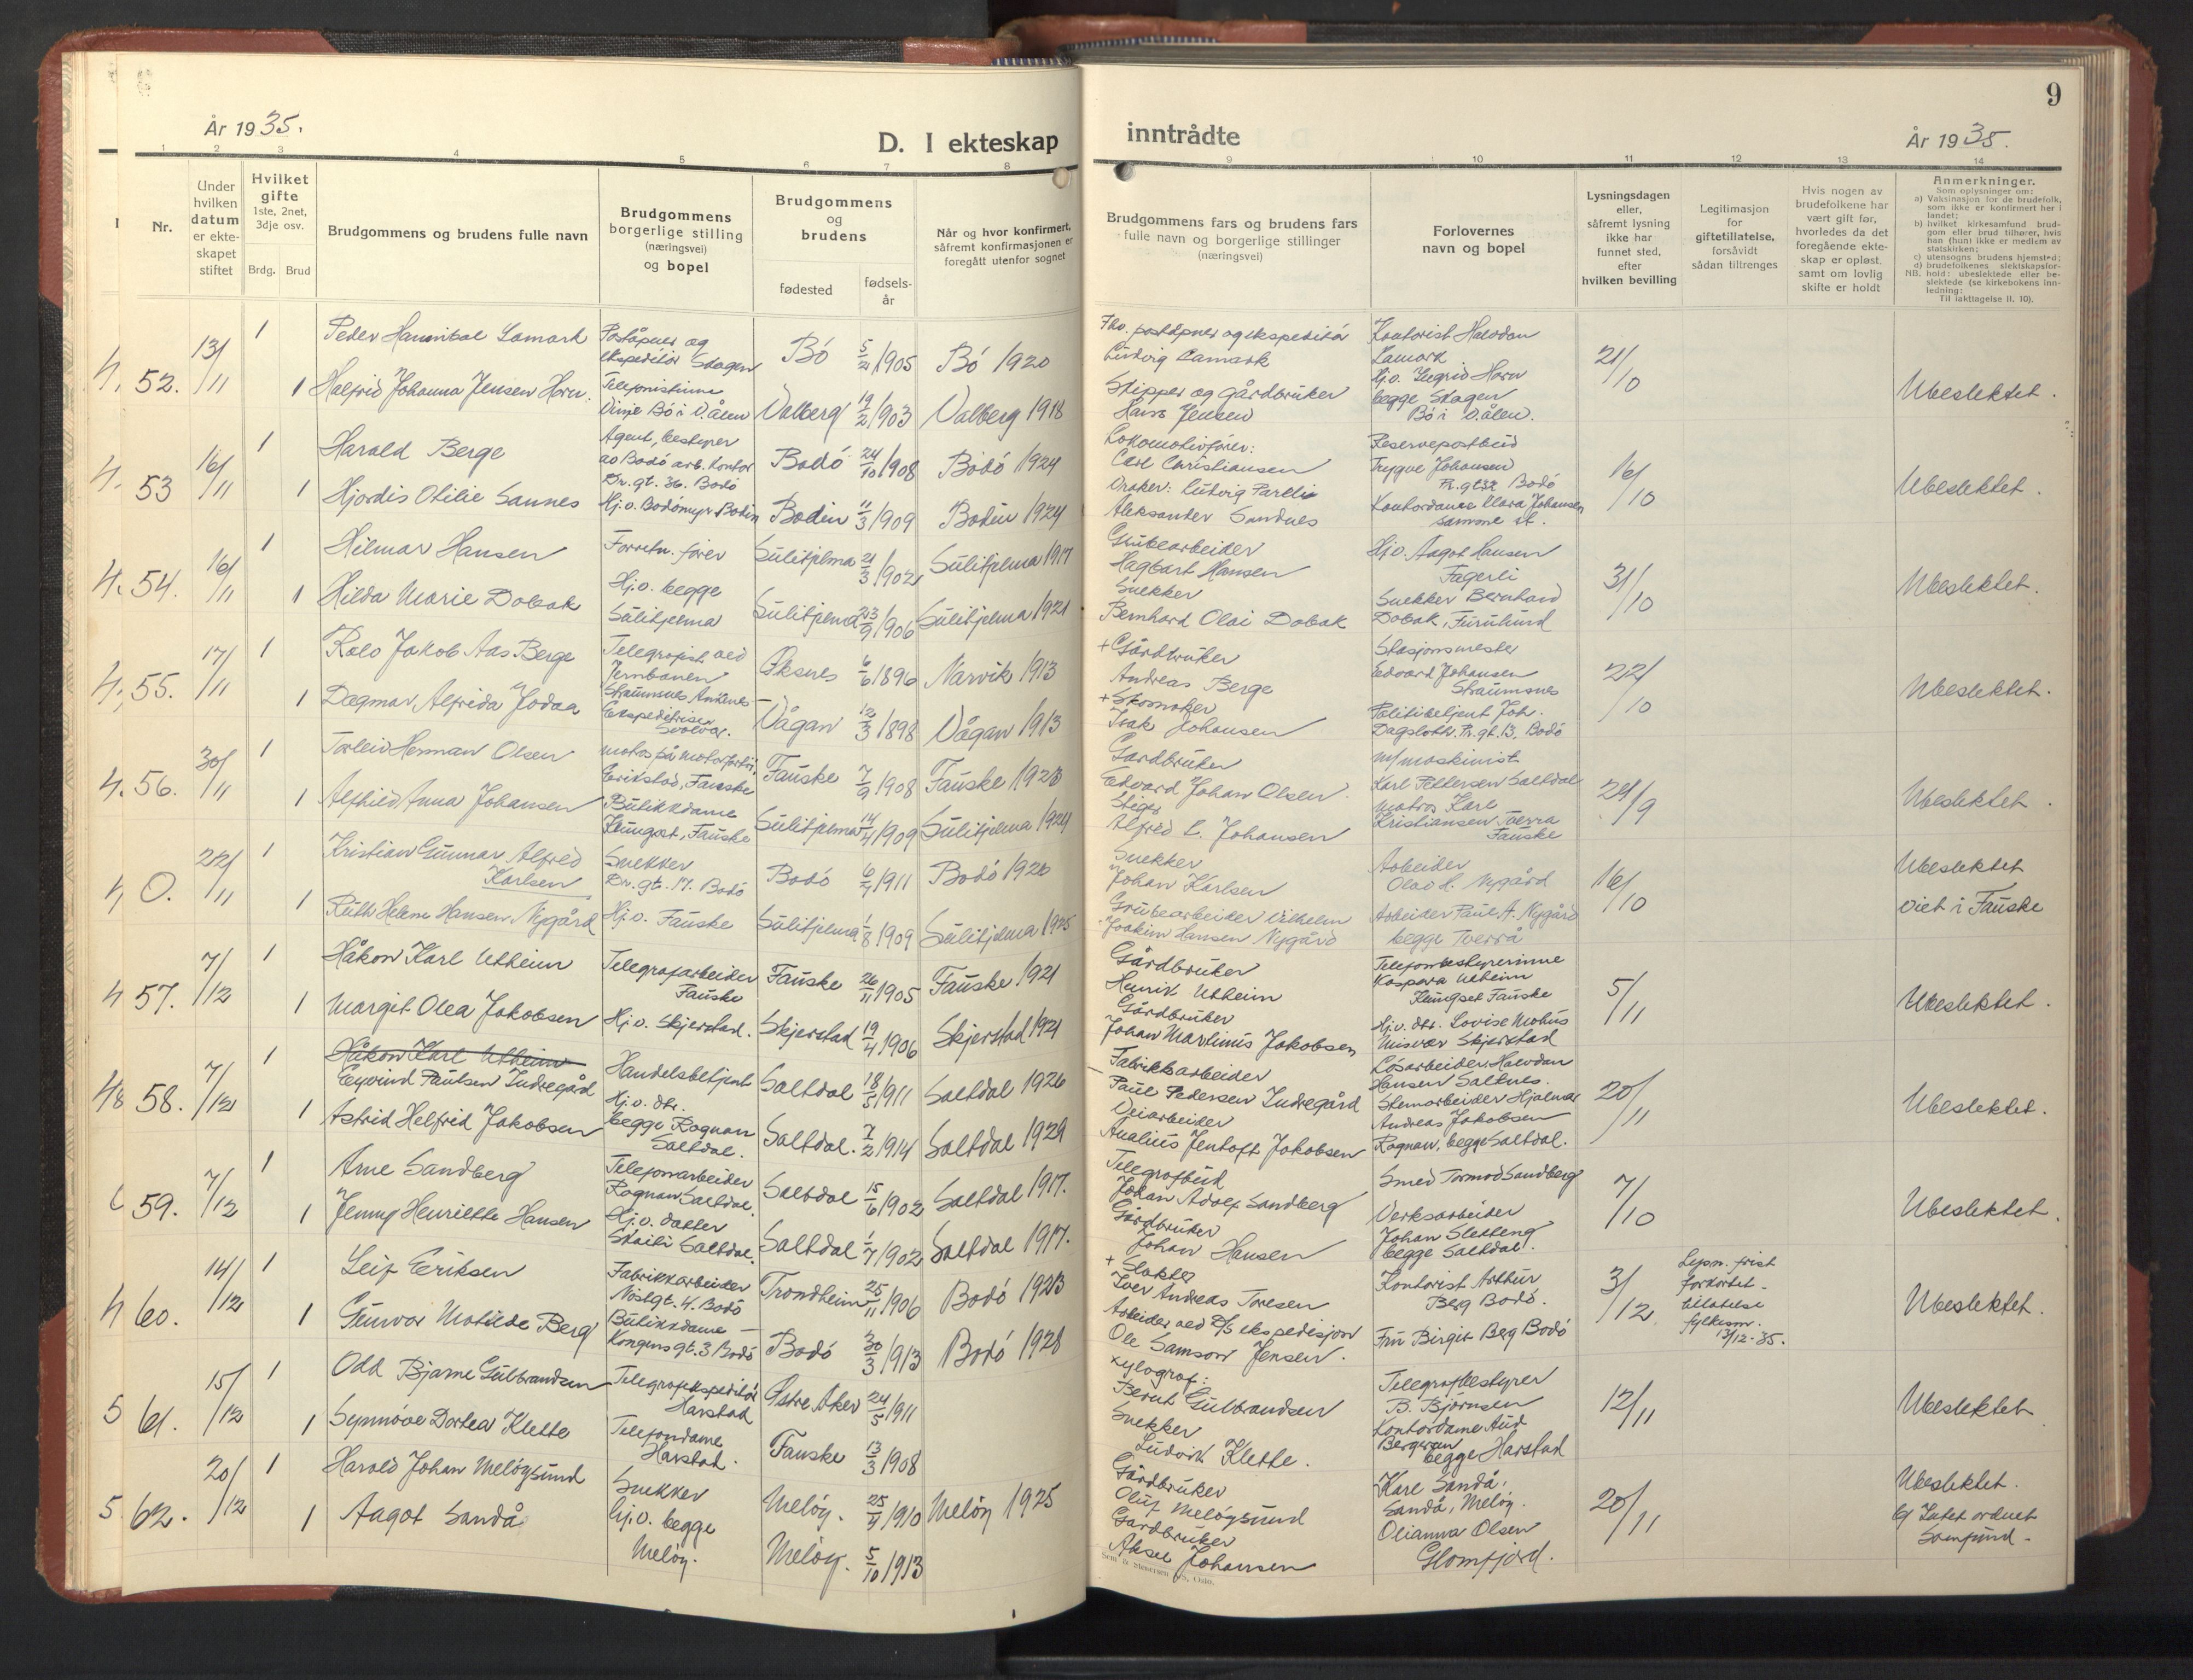 År 1935.
D. I ekteskap
inntrådte
9
År 1935.
1 2 3 4 5 6 7 8 9 10 11 12 13 14
Nr.
Under hvilken datum er ekteskapet stiftet
Hvilket gifte 1ste, 2net, 3dje osv.
Brdg. Brud
Brudgommens og brudens fulle navn
Brudgommens borgerlige stilling (næringsvei) og bopel
Brudgommens og brudens
fødested
fødselsår
Når og hvor konfirmert, såfremt konfirmasjonen er foregått utenfor sognet
Brudgommens fars og brudens fars fulle navn og borgerlige stillinger (næringsvei)
Forlovernes navn og bopel
Lysningsdagen eller, såfremt lysning ikke har funnet sted, efter hvilken bevilling
Legitimasjon for giftetillatelse, forsåvidt sådan tiltrenges
Hvis nogen av brudefolkene har vært gift før, hvorledes da det foregående ekteskap er opløst, samt om lovlig skifte er holdt
Anmerkninger.
Som oplysninger om:
a) Vaksinasjon for de brudefolk, som ikke er konfirmert her i landet;
b) hvilket kirkesamfund brudgom eller brud tilhører, hvis han (hun) ikke er medlem av statskirken;
c) utensogns brudens hjemsted;
d) brudefolkenes slektskapsforhold: ubeslektede eller beslektede (se kirkebokens innledning:
NB.
Til iakttagelse II. 10).
52. 13/11 1 Peder Hannibal Lamark
Poståpner og ekspeditør Skagen
Bö 5/2 1905 Bö 1920
Fhv. poståpner og ekspeditör
Ludvig Lamark
Kontorist Halvdan Lamark
21/10
1 Halfrid Johanna Jensen Horn.
Telefonistinne
Vinje Bö i V.ålen
Valberg 19/2 1903 Valberg 1918
Skipper og gårdbruker
Hans Jensen
Hj.v. Ingrid Horn
begge Skagen
Bö i V.ålen.
Ubeslektet.
53 16/11 1 Harald Berge
Agent, bestyrer av Bodö arb. kontor
Dr.gt. 36. Bodö
Bodö 24/10 1908 Bodö 1924
Lokomotivfører:
Carl Christiansen
Reservepostbud
Trygve Johansen
Bodö
16/10
1 Hjordis Otilie Sannes
Hj.v. Bodömyr Bodin
Bodin 11/3 1909 Bodin 1924
Aleksander Sandnes
Kontordame Clara Johansen
samme st.
Ubeslektet.
54. 16/11 1 Hilmar Hansen
Forretn. fører
Sulitjelma 21/3 1902 Sulitjelma 1917
Grubearbeider
Hagbart Hansen
Hj.v. Aagot Hansen
Fagerli
31/10
1 Hilda Marie Dobak
Hj.v. begge
Sulitjelma
Sulitjelma 23/9 1906 Sulitjelma 1921
Snekker
Bernhard Olai Dobak
Snekker Bernhard
Dobak, Furulund
Ubeslektet.
55. 17/11 1 Rolv Jakob Aas Berge
Telegrafist ved
Jernbanen
Öksnes 6/6 1896 Narvik 1913
+ Gårdbruker
Andreas Berge
Stasjonsmester
Edvard Johansen
Straumsnes
22/10
1 Dagmar Alfrida Jodaa
Ekspeditrise
Svolvær.
Vågan 12/3 1898 Vågan 1913
+ Skomaker
Isak Johansen
Politibetjent Joh.
Bodö
Ubeslektet.
56. 30/11 1 Torleiv Herman Olsen
Erikstad, Fauske
Fauske 7/9 1908 Fauske 1923
Gardbruker
Edvard Johan Olsen
M/maskinist
Karl Pettersen Saltdal
24/9
1 Alfhild Anna Johansen
Butikkdame
Klungset, Fauske
Sulitjelma 14/4 1909 Sulitjelma 1924
Stiger
Alfred L. Johansen
Matros Karl
Kristiansen Tverra
Fauske
Ubeslektet.
0. 22/11 1 Kristian Gunnar Alfred
Karlsen
Snekker
Dr.gt. 17. Bodö
Bodö 6/4 1911 Bodö 1926
Snekker
Johan Karlsen
Arbeider
Olav H. Nygård
16/10
Ubeslektet
1 Ruth Helene Hansen Nygård
Hj.v. Fauske
Sulitjelma 1/8 1909 Sulitjelma 1925
Grubearbeider Vilhelm
Joakim Hansen Nygård
Arbeider Paul A. Nygård
begge Tverrå
viet i Fauske
57. 7/12 1 Håkon Karl Utheim
Telegrafarbeider
Fauske
Fauske 26/11 1905 Fauske 1921
Gårdbruker
Henrik Utheim
Telefonbestyrerinne
Kaspara Utheim
Klungset Fauske
5/11
1 Margit Olea Jakobsen
Hj.v. Skjerstad.
Skjerstad 19/4 1906 Skjerstad 1921
Gårdbruker
Johan Martinus Jakobsen
Hj.v. dtr. Lovise Mohus
Misvær Skjerstad
Ubeslektet.
58. 7/12 1 Håkon Karl Utheim
Eyvind Paulsen Indregård
Handelsbetjent
Saltdal 18/5 1911 Saltdal 1926
Fabrikkarbeider
Paul Pedersen Indregård
Løsarbeider Halvdan
Hansen Saltnes.
20/11
1 Astrid Helfrid Jakobsen
Hj.v. dtr.
begge Rognan
Saltdal.
Saltdal. 7/2 1914 Saltdal 1929
Veiarbeider
Analius Jentoft Jakobsen
Stenarbeider Hjalmar
Andreas Jakobsen
Rognan, begge Saltdal.
Ubeslektet.
59. 7/12 1 Arne Sandberg
Telefonarbeider
Rognan Saltdal.
Saltdal 15/6 1902 Saltdal 1917.
Telegrafbud
Johan Adolf Sandberg
Smed Tormod Sandberg
7/10
1 Jenny Henriette Hansen
Hj.v. datter
Skaiti Saltdal.
Saltdal 1/7 1902 Saltdal 1917.
Gårdbruker
Johan Hansen
Verksarbeider
Johan Sletteng
begge Saltdal.
Ubeslektet.
60. 14/12 1 Leif Eriksen
Fabrikkarbeider
Bodö
Trondheim 25/11 1906 Bodö 1923
+ Slakter
Iver Andreas Toresen
Kontorist Arthur
Berg Bodö.
3/12
Lysn. frist
forkortet
tillatelse
fylkesm.
13/12-35.
1 Gunvor Matilde Berg
Butikkdame
Kongens gt. 3 Bodö
Bodö 30/3 1913 Bodö 1928
Arbeider ved D/S ekspedisjon
Ole Samson Jensen.
Fru Birgit Berg Bodö
Ubeslektet.
61. 15/12 1 Odd Bjarne Gulbrandsen
Telegrafekspeditör
Harstad
Østre Aker 24/5 1911
Xylograf:
Bernt Gulbrandsen
Telegrafbestyrer
B. Björnsen
12/11
1 Synnöve Dortea Klette
Telefondame
Harstad.
Fauske 13/3 1908
Snekker
Ludvik Klette.
Kontordame Aud
Bergersen
begge Harstad
Ubeslektet
62. 20/12 1 Harald Johan Meløysund
Snekker
Meløy. 25/4 1910 Meløy 1925
Gårdbruker
Oluf Meløysund
Karl Sandå,
Sandå, Meløy.
20/11
Ubeslektet.
1 Aagot Sandå
hj.v. begge
Meløy.
Meløy. 5/10 1913
Gardbruker
Aksel Johansen
Olianna Olsen
Glomfjord.
b/ Intet ordnet
Samfund.